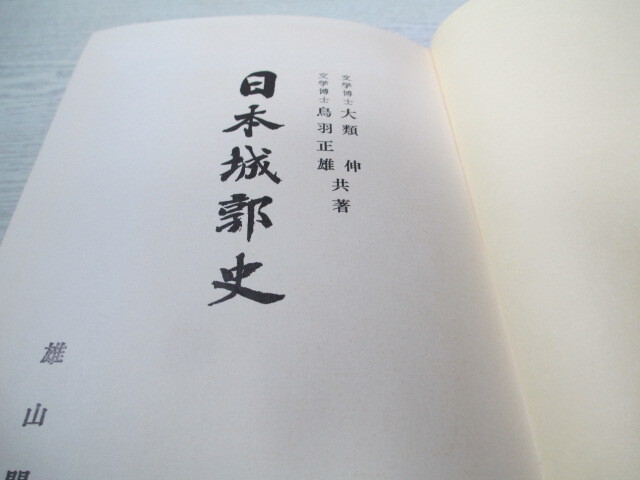 文学博士 大類 伸
文学博士 鳥羽正雄
共著
日本城郭史
雄山